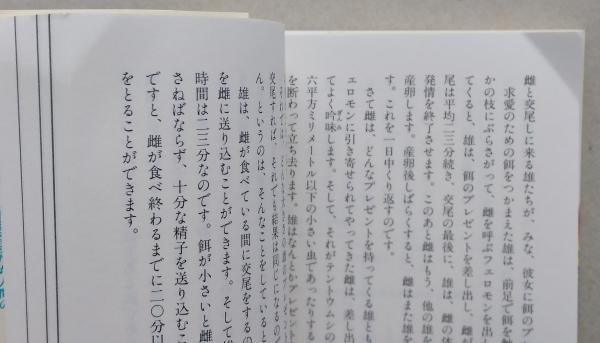 雌と交尾しに来る雄たちが、みな、彼女に餌のプ
求愛のための餌をつかまえた雄は、前足で餌を
かの枝にぶらさがって、雌を呼ぶフェロモンを出し
てくると、雄は、餌のプレゼントを差し出し、雌が
尾は平均二三分続き、交尾の最後に、雄は、雌の体
発情を終了させます。このあと雌はもう、他の雄を
産卵します。産卵後しばらくすると、雌はまた雄を
す。これを一日中くり返すのです。
さて雌は、どんなプレゼントを持ってくる雄とも
エロモンに引き寄せられてやってきた雌は、差し出
てよく吟味します。そして、それがテントウムシの
六平方ミリメートル以下の小さい虫であったりする
を断わって立ち去ります。雄はなんとかプレゼント
交尾すれば、それでも結果は同じになるの
ん。というのは、そんなことをしていると
雄は、雌が食べている間に交尾をするの
を雌に送り込むことができます。そして
時間は二三分なのです。餌が小さいと雌
さねばならず、十分な精子を送り込むこ
ですと、雌が食べ終わるまでに二〇分以
をとることができます。